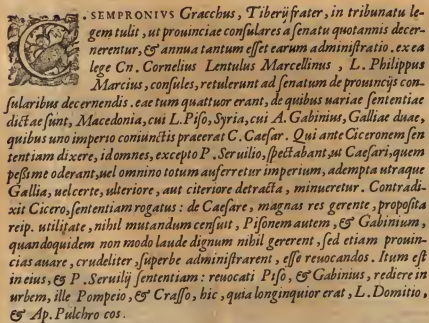 C. SEMPRONIVS Gracchus, Tiberij frater, in tribunatu le-
gem tulit, ut prouinciae consulares a senatu quotannis decer-
nerentur, & annua tantum esset earum administratio. ex ea
lege Cn. Cornelius Lentulus Marcellinus, L. Philippus
Marcius, consules, retulerunt ad senatum de prouincijs con-
sularibus decernendis. eae tum quattuor erant, de quibus uariae sententiae
dictae sunt, Macedonia, cui L. Piso, Syria, cui A. Gabinius, Galliae duae,
quibus uno imperio coniunctis praeerat C. Caesar. Qui ante Ciceronem sen
tentiam dixere, id omnes, excepto P. Seruilio, spectabant, ut Caesari, quem
pessime oderant, uel omnino totum auferretur imperium, adempta utraque
Gallia, uel certe, ulteriore, aut citeriore detracta, minueretur. Contradi-
xit Cicero, sententiam rogatus: de Caesare, magnas res gerente, proposita
reip. utilitate, nihil mutandum censuit, Pisonem autem, & Gabinium,
quandoquidem non modo laude dignum nihil gererent, sed etiam prouin-
cias auare, crudeliter, superbe administrarent, esse reuocandos. Itum est
in eius, & P. Seruilij sententiam: reuocati Piso, & Gabinius, rediere in
urbem, ille Pompeio, & Crasso, hic, quia longinquior erat, L. Domitio,
& Ap. Pulchro cos.